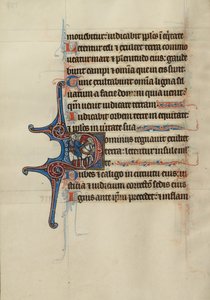 mouebitur: iudicabit pplos in eqitate
Letentur celi & exultet terra commo
ueatur mare & plenitudo eius: gaude
bunt campi & omnia que in eis sunt
Tunc exultabunt omnia ligna sil
uarum a facie domini quia uenit:
qm uenit iudicare terram
Iudicabit orbem terre in equitate:
& pplos in ueritate sua
Dominus regnauit exultet
terra: letentur insule
Nubes & caligo in circuitu eius: ius
ticia & iudicium correctio sedis eius
Ignis ante ipm precedet: & inflam